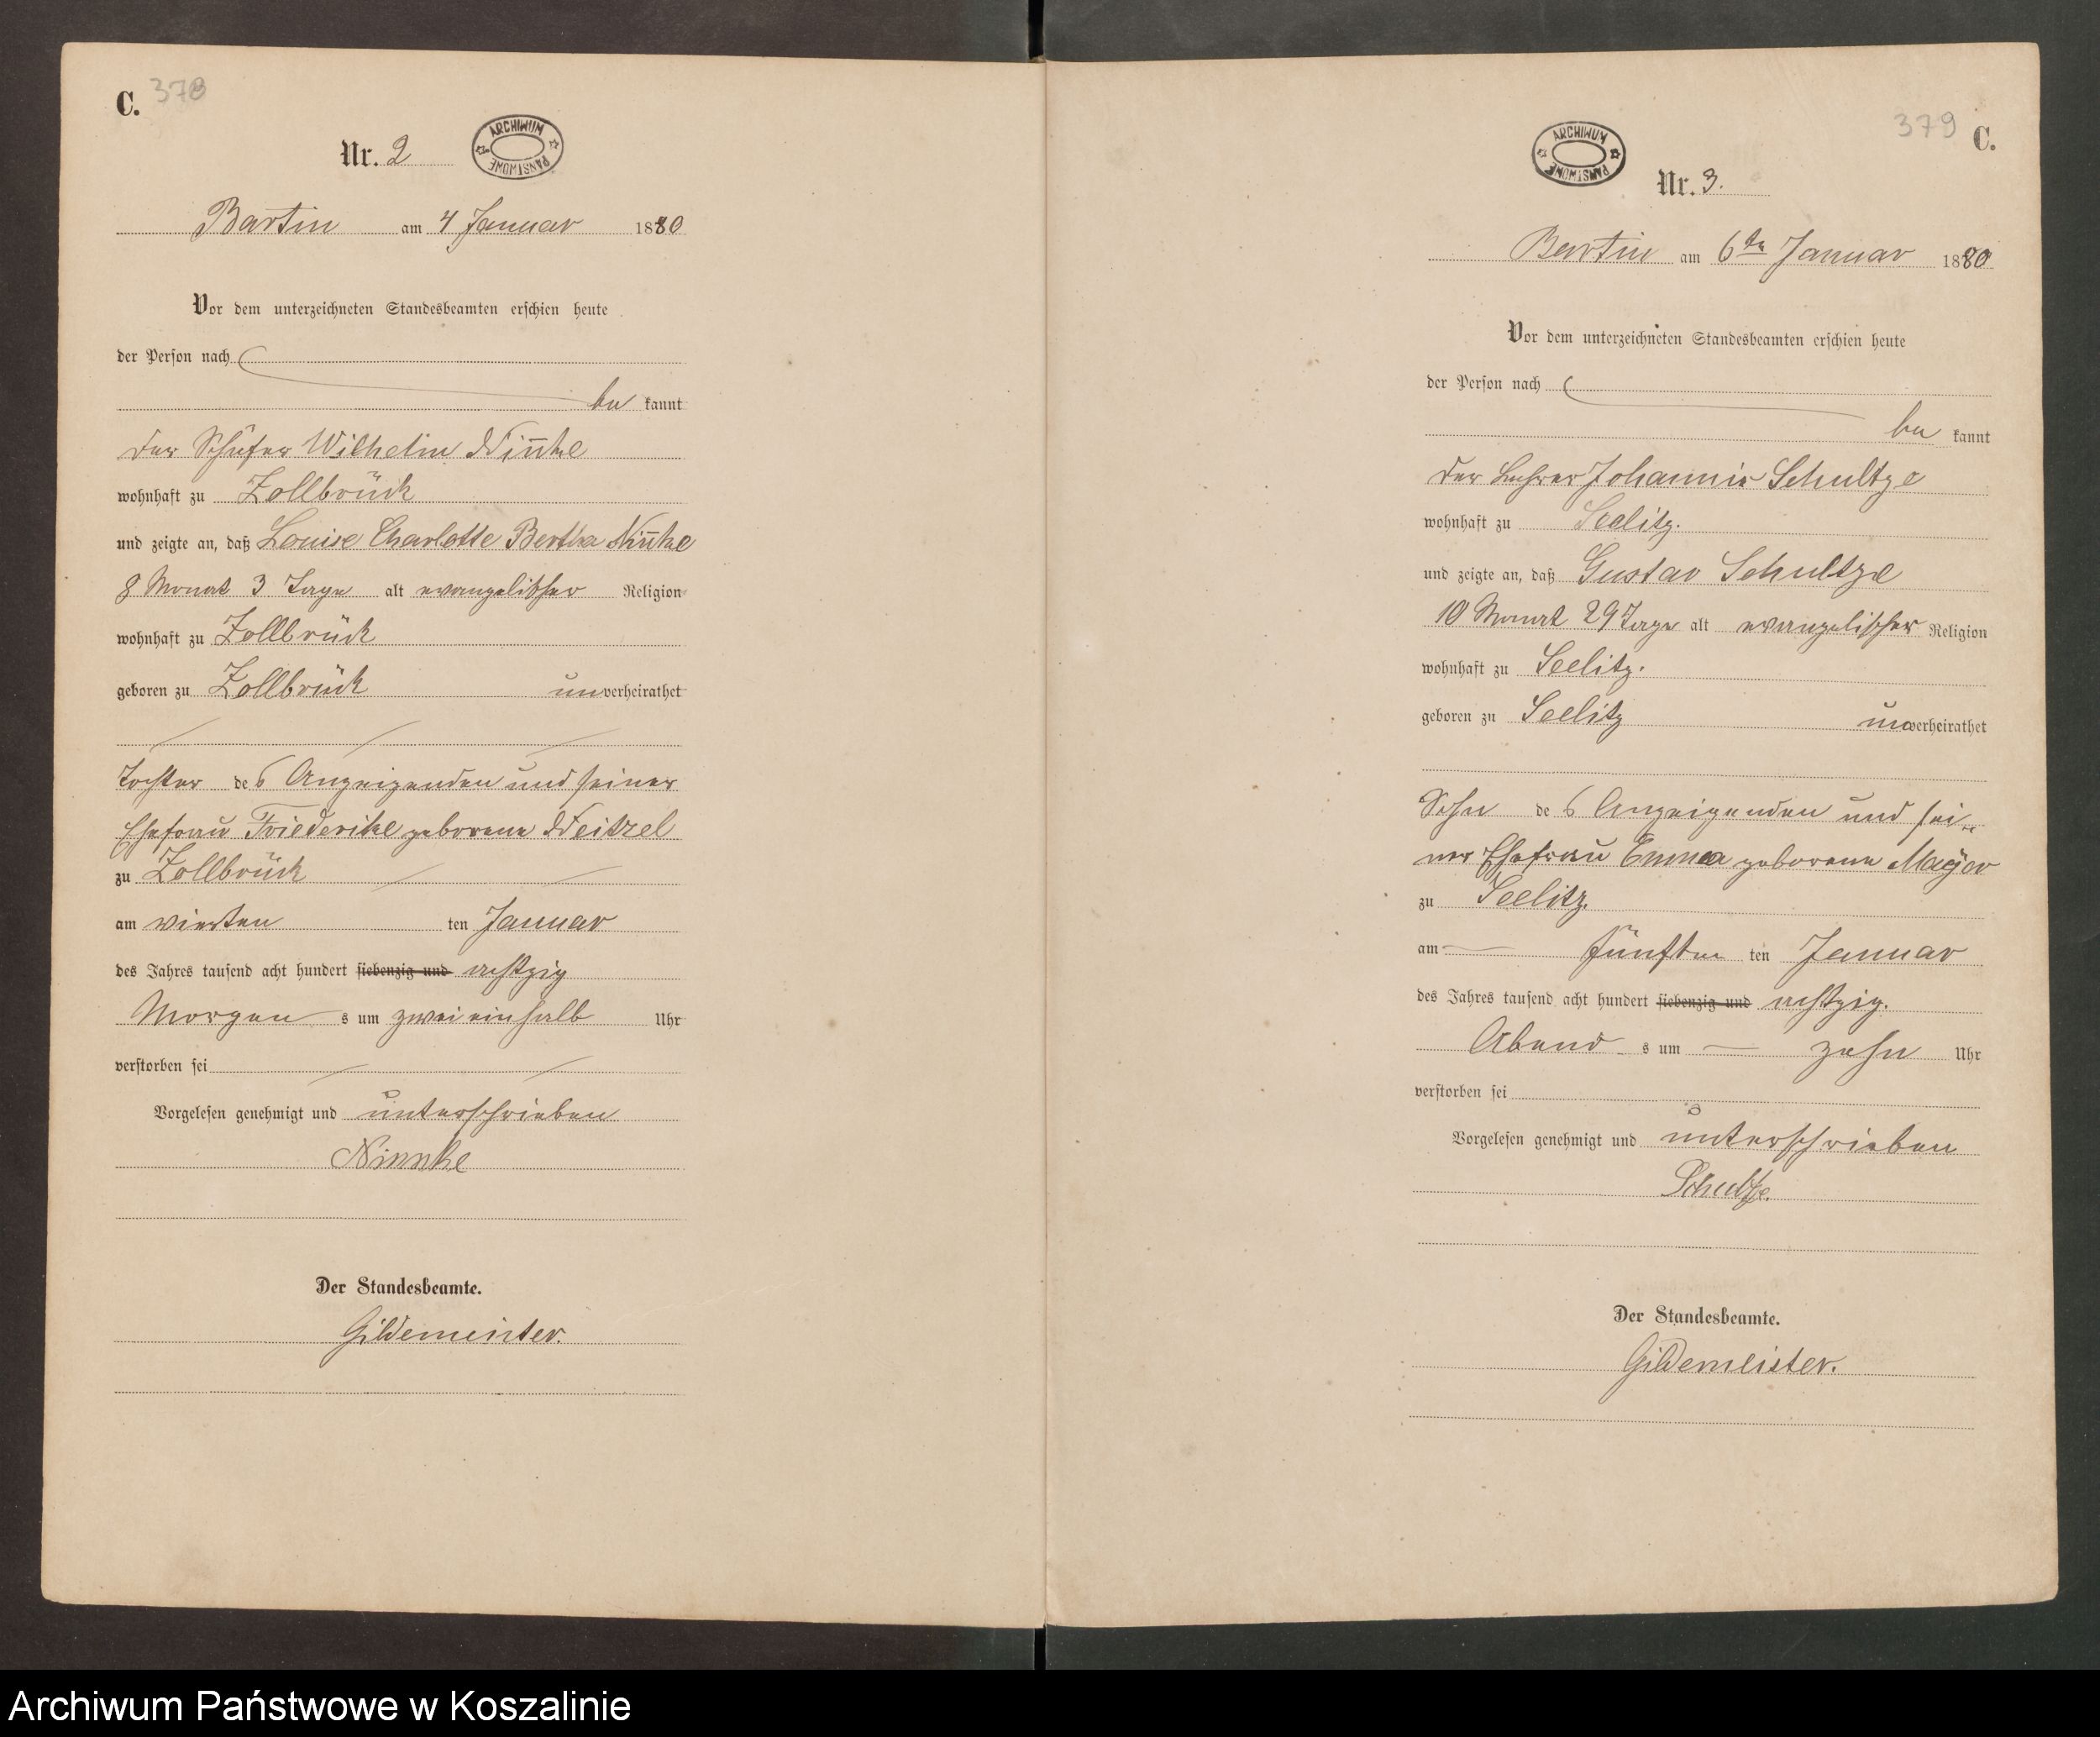 C.
378
Nr. 2
ARCHIWUM
PAŃSTWOWE
Bartin am 4 Januar 1880
Vor dem unterzeichneten Standesbeamten erschien heute
der Person nach
be kannt
der Schäfer Wilhelm Nin̄ke
wohnhaft zu Zollbrück
und zeigte an, daß Louise Charlotte Bertha Nin̄ke
8 Monat 3 Tage alt evangelischer Religion
wohnhaft zu Zollbrück
geboren zu Zollbrück unverheirathet
Tochter des Anzeigenden und seiner
Ehefrau Friederike geborene Weitzel
zu Zollbrück
am vierten ten Januar
des Jahres tausend acht hundert siebenzig und achtzig
Morgen s um zwei einhalb Uhr
verstorben sei
Vorgelesen genehmigt und unterschrieben
Ninnke
Der Standesbeamte.
Gildemeister.
379
C.
ARCHIWUM
PAŃSTWOWE
Nr. 3.
Bartin am 6ten Januar 1880
Vor dem unterzeichneten Standesbeamten erschien heute
der Person nach
be kannt
der Lehrer Johannis Schultze
wohnhaft zu Seelitz.
und zeigte an, daß Gustav Schultze
10 Monat 29 Tage alt evangelischer Religion
wohnhaft zu Seelitz.
geboren zu Seelitz unverheirathet
Sohn des Anzeigenden und sei-
ner Ehefrau Emma geborene Mayer
zu Seelitz
am fünften ten Januar
des Jahres tausend acht hundert siebenzig und achtzig.
Abend s um zehn Uhr
verstorben sei
Vorgelesen genehmigt und unterschrieben
Schultze.
Der Standesbeamte.
Gildemeister.
Archiwum Państwowe w Koszalinie